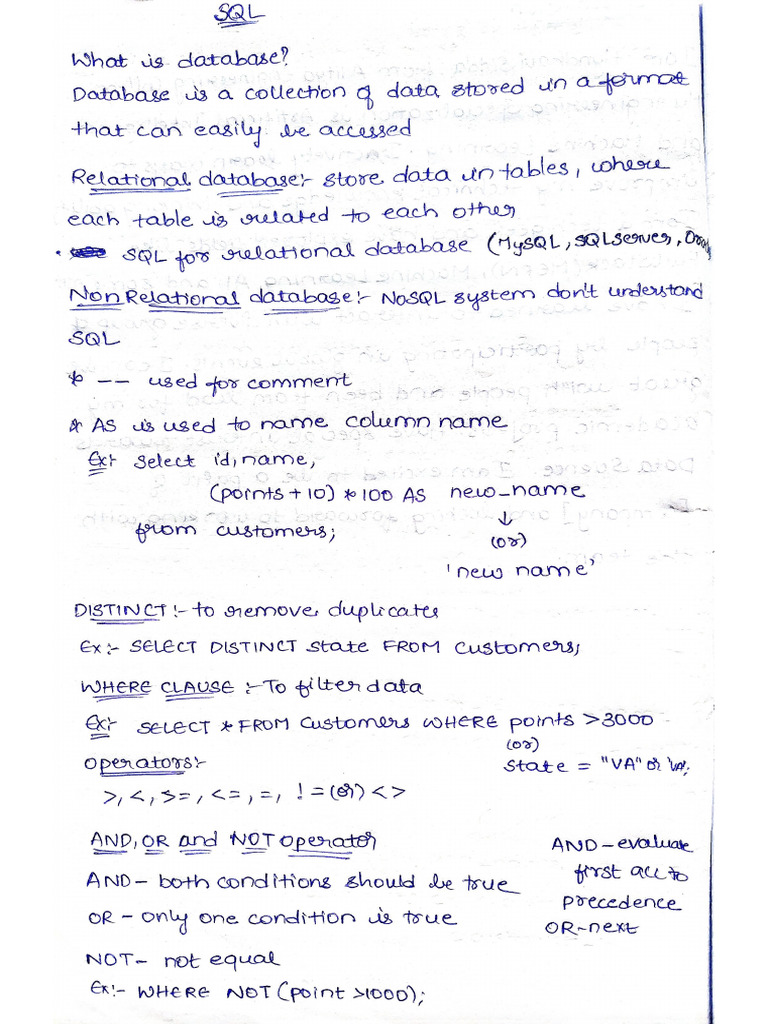 SQL
What is database?
Database is a collection of data stored in a format
that can easily be accessed
Relational database:- store data in tables, where
each table is related to each other
• SQL for relational database (MySQL, SQLserver,
Non Relational database:- NoSQL system don't understand
SQL
* -- used for comment
* AS is used to name column name
Ex:- Select id, name,
(points + 10) * 100 AS new_name
from customers;
↓
(or)
'new name'
DISTINCT:- to remove duplicates
Ex:- SELECT DISTINCT state FROM customers;
WHERE CLAUSE:- To filter data
Ex:- SELECT * FROM customers WHERE points >3000
(or)
state = "VA" or 'VA';
operators:-
>, <, >=, <=, =, != (or) <>
AND, OR and NOT operator
AND - both conditions should be true
OR - only one condition is true
NOT - not equal
Ex:- WHERE NOT (point >1000);
AND - evaluate
first acc to
precedence
OR - next